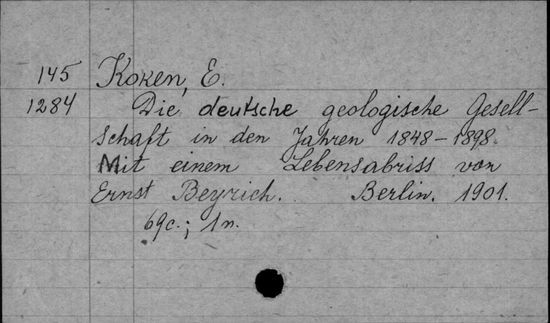 145 Koken, E.
1284 Die deutsche geologische Gesell-
schaft in den Jahren 1848-1898.
Mit einem Lebensabriss von
Ernst Beyrich. Berlin. 1901.
69c.; 1n.